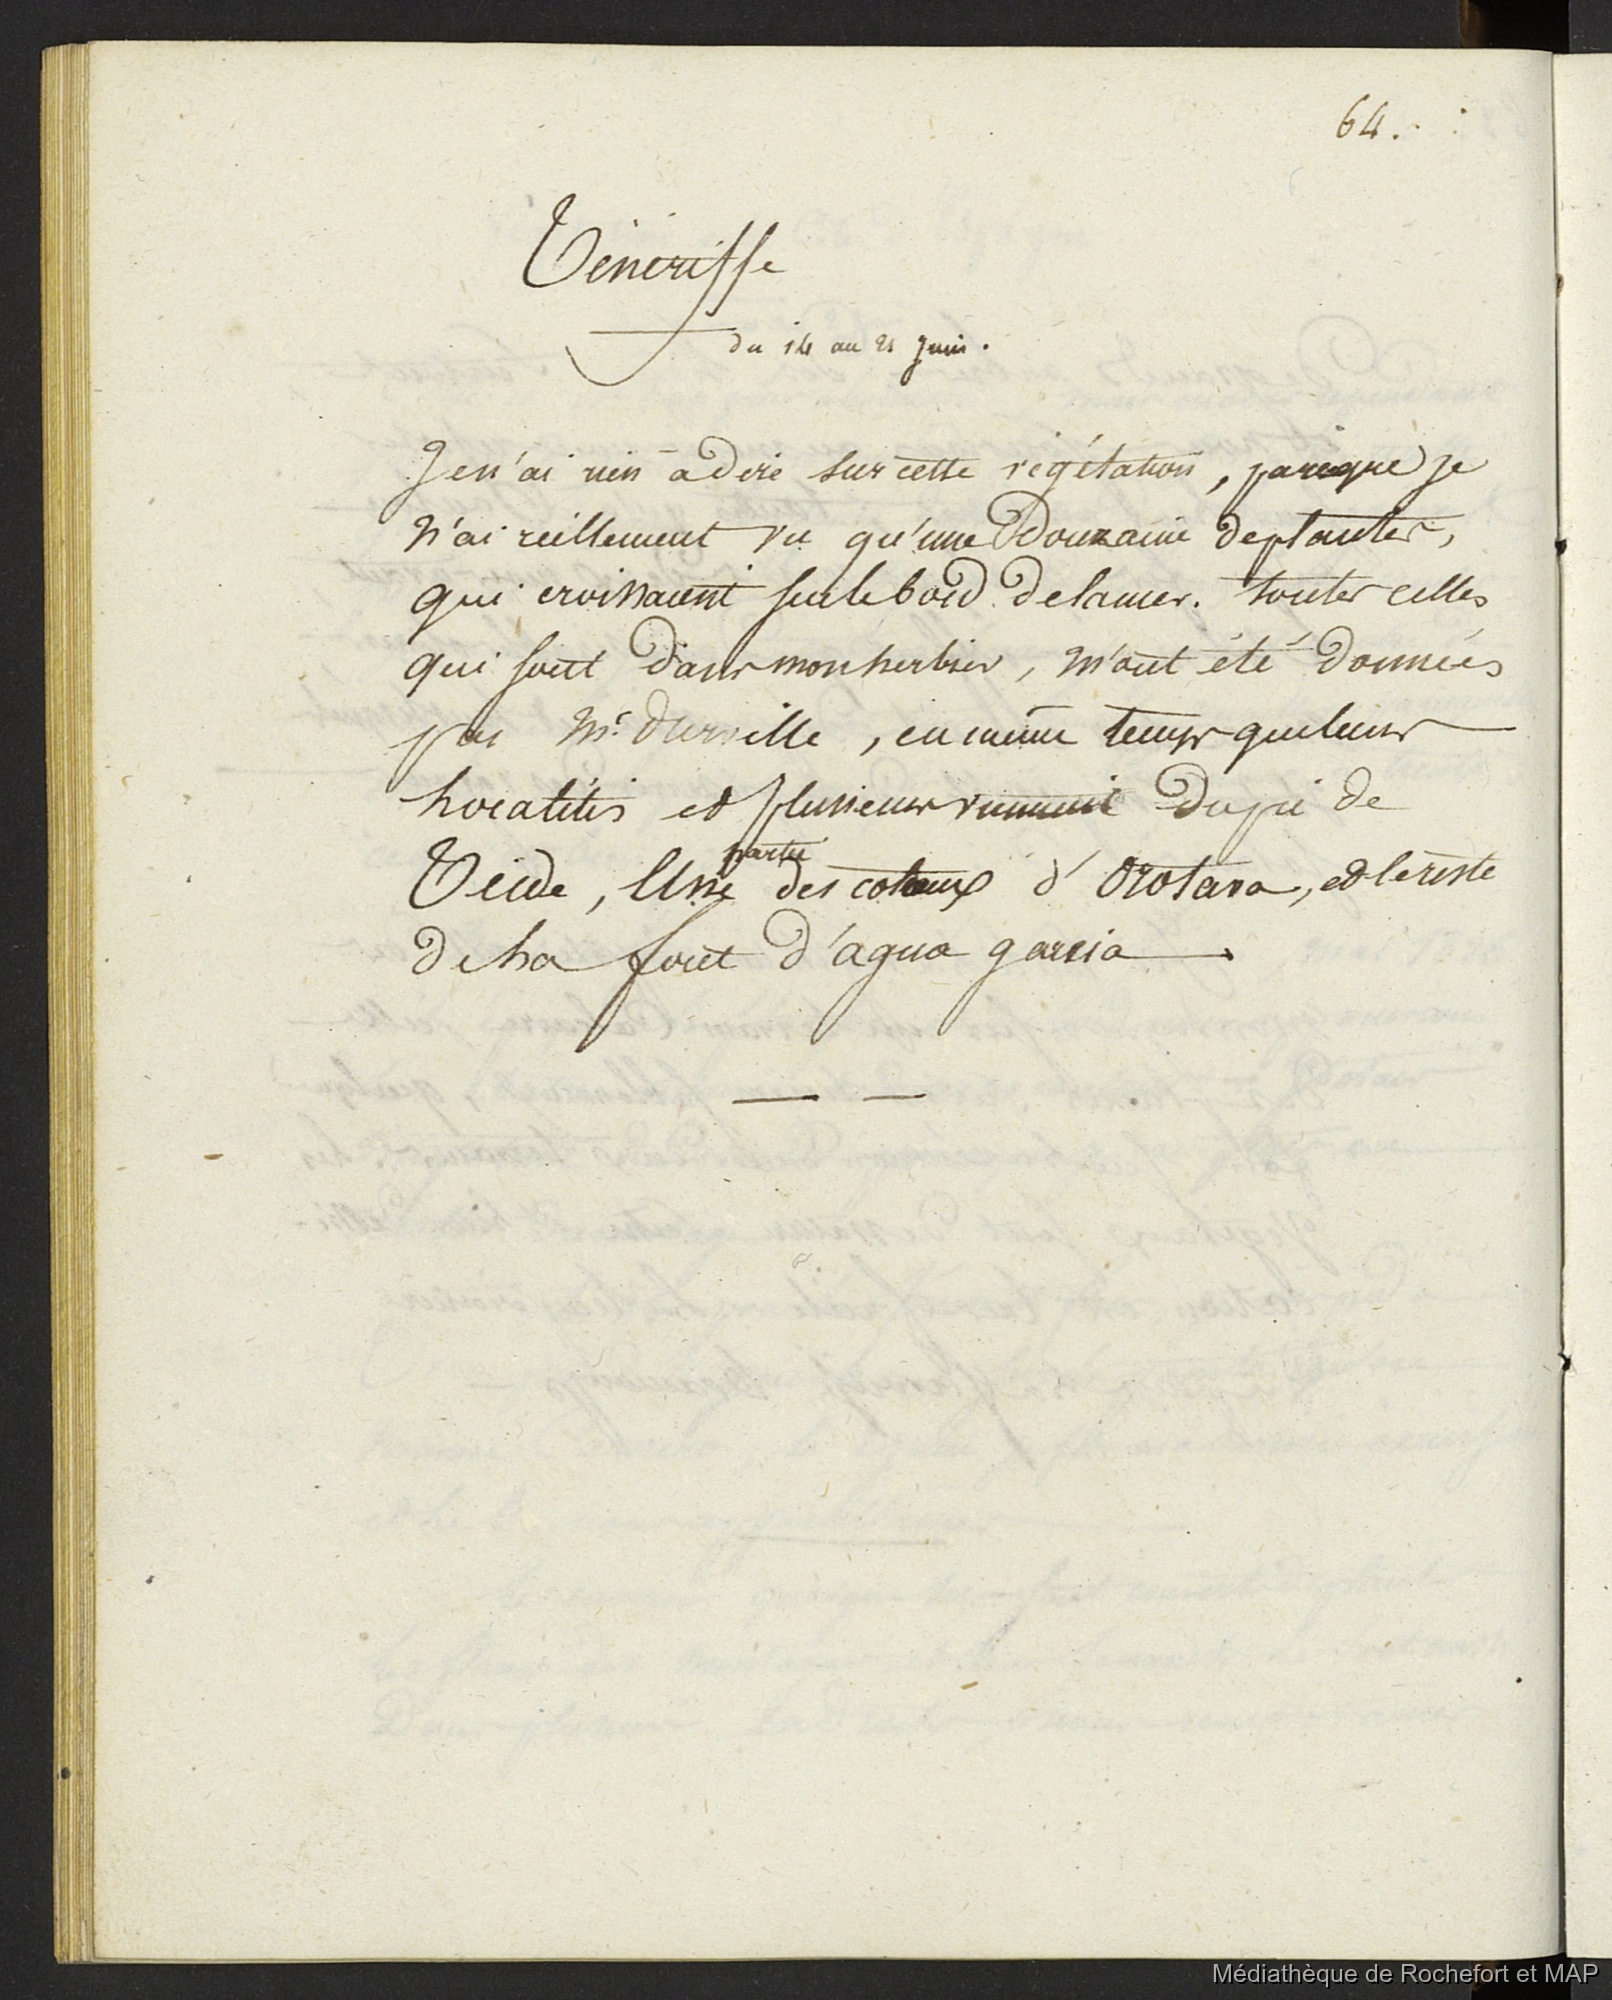 64.
Ténériffe
du 14 au 21 Juin.
Je n'ai rien à dire sur cette végétation, parceque je
n'ai réellement vu qu'une Douzaine de plantes,
qui croissaient sur le bord de la mer. toutes celles
qui sont dans mon herbier, m'ont été données
par Mr. Durville, en même temps que leurs
Localités et plusieurs viennent du pic de
Teide, Une partie des coteaux d'Orotava, et le reste
de La foret d'agua garcia
Médiathèque de Rochefort et MAP